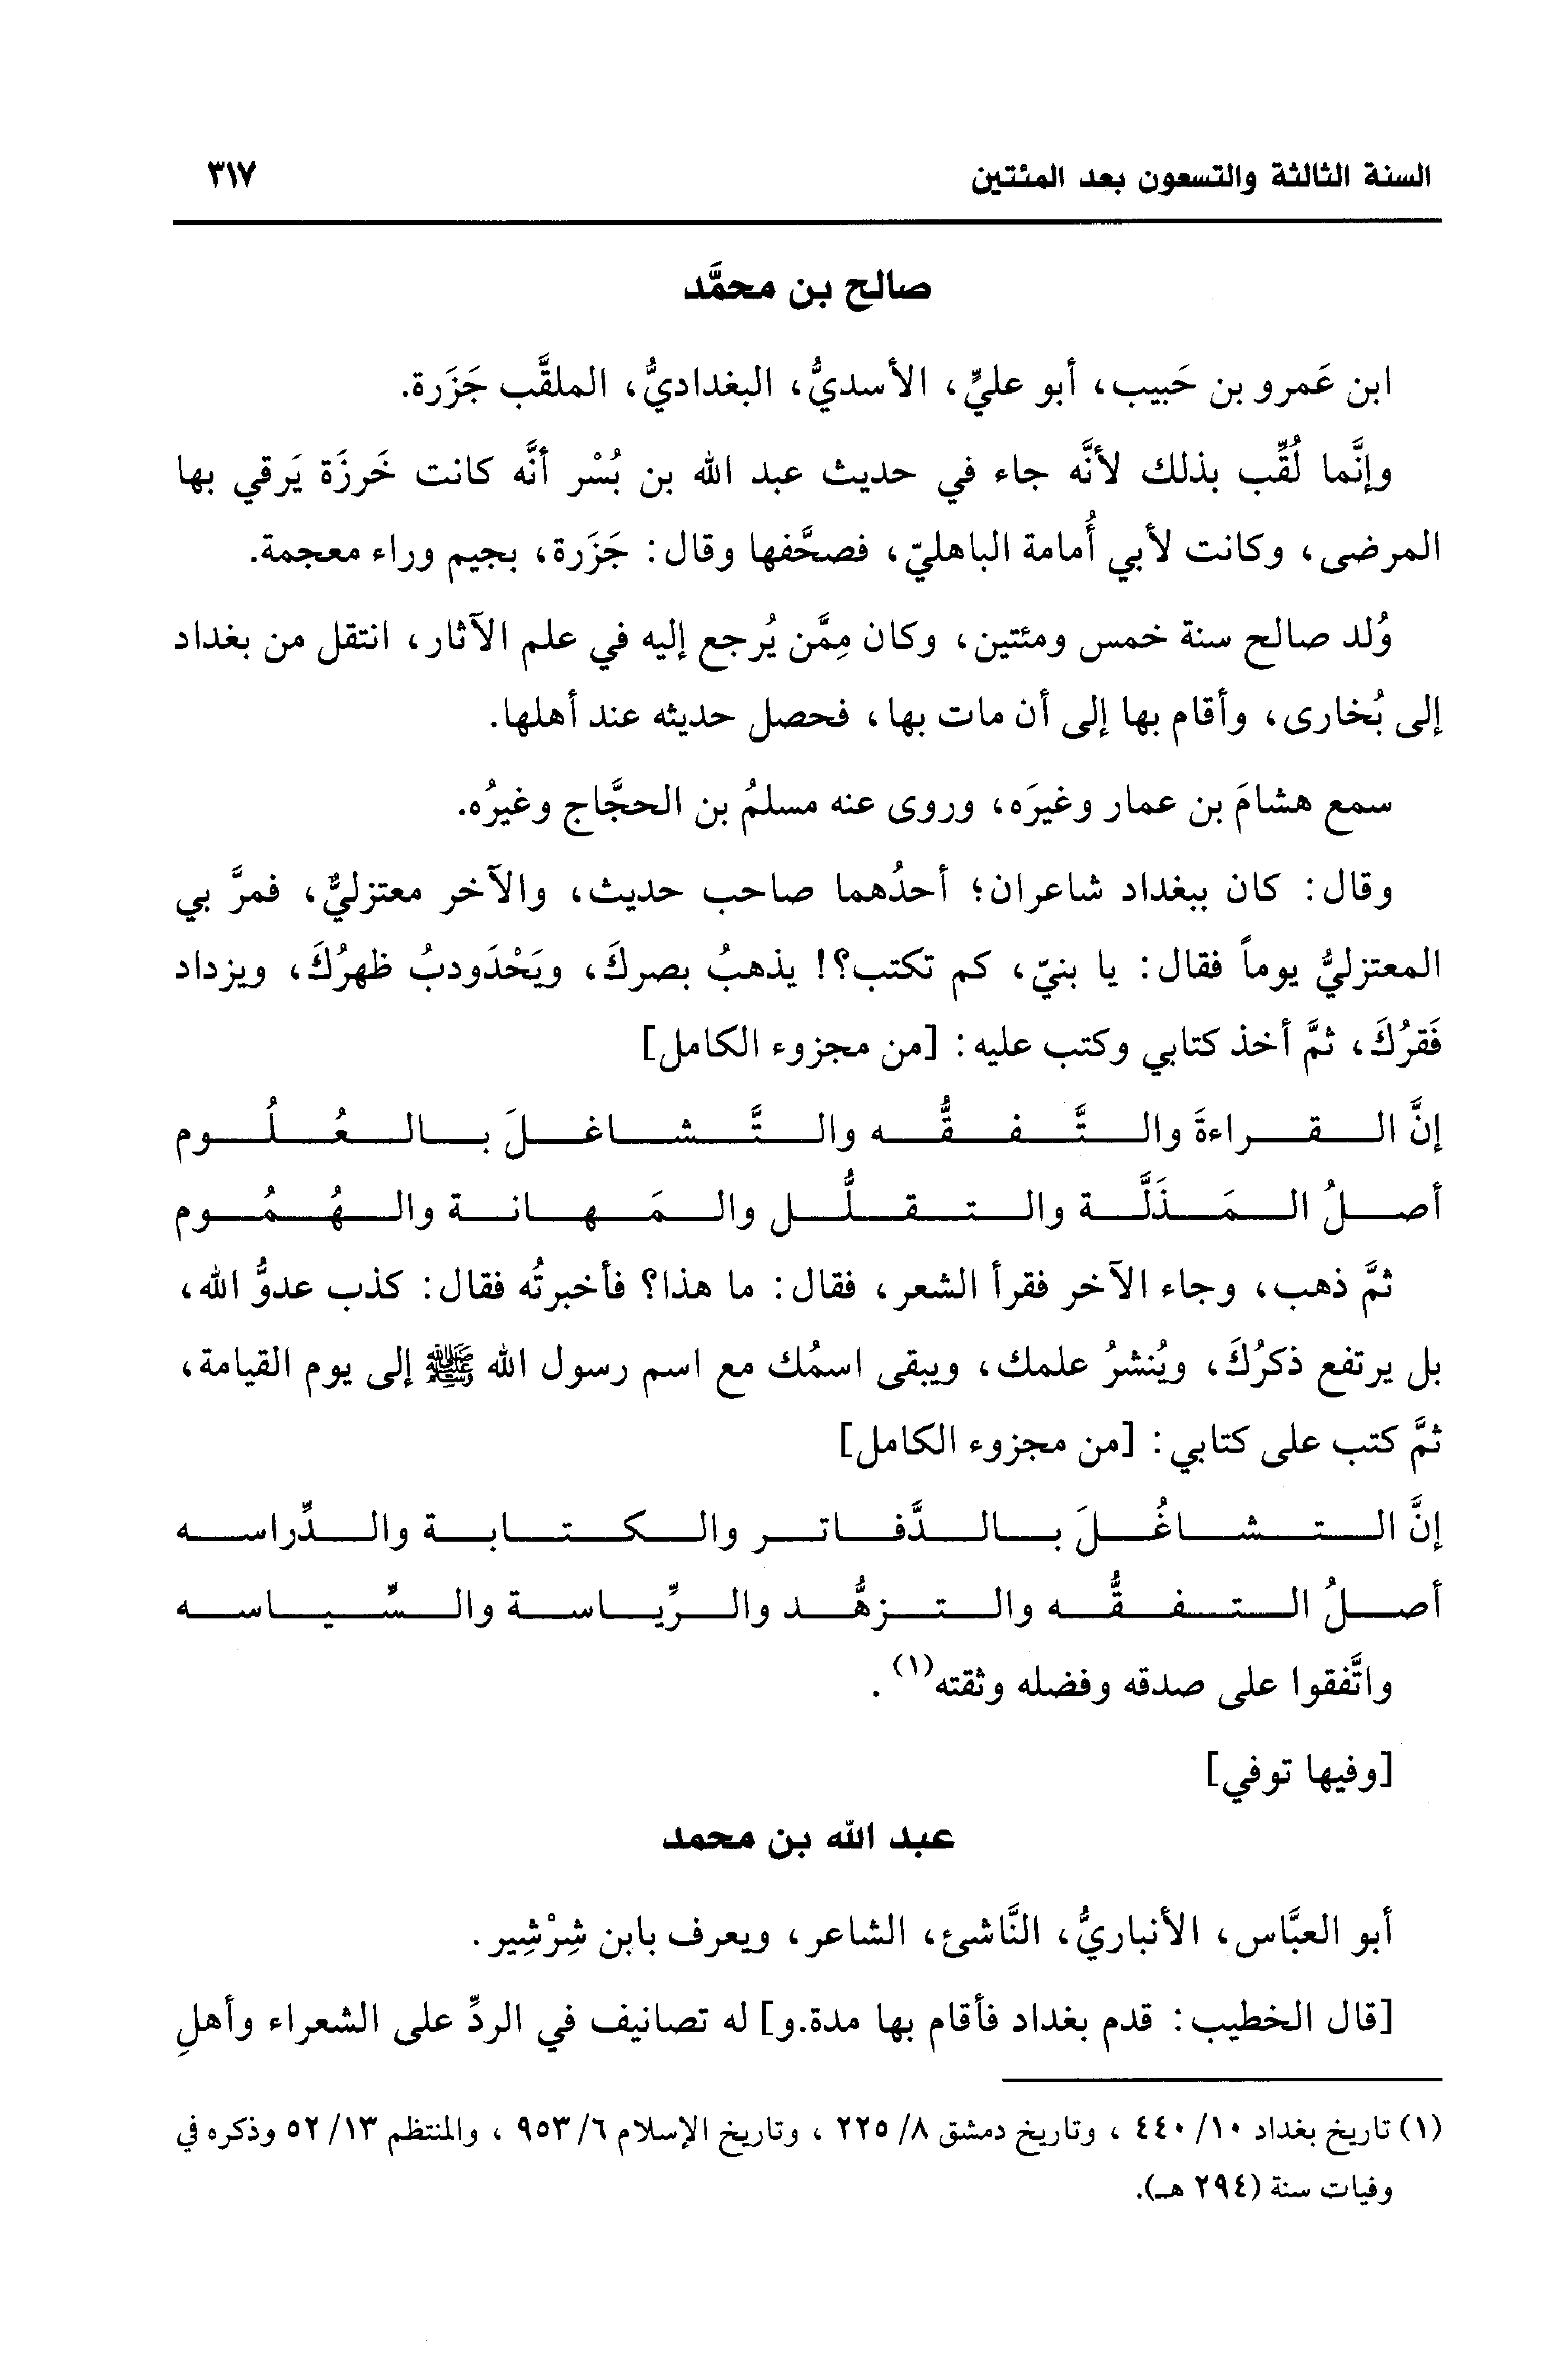 السنة الثالثة والتسعون بعد المئتين ٣١٧
صالح بن محمَّد
ابن عَمرو بن حَبيب، أبو عليٍّ، الأسديُّ، البغداديُّ، الملقَّب جَزَرة.
وإنَّما لُقِّب بذلك لأنَّه جاء في حديث عبد الله بن بُسْر أنَّه كانت خَرزَة يَرقي بها
المرضى، وكانت لأبي أُمامة الباهليّ، فصحَّفها وقال: جَزَرة، بجيم وراء معجمة.
وُلد صالح سنة خمس ومئتين، وكان مِمَّن يُرجع إليه في علم الآثار، انتقل من بغداد
إلى بُخارى، وأقام بها إلى أن مات بها، فحصل حديثه عند أهلها.
سمع هشامَ بن عمار وغيرَه، وروى عنه مسلمُ بن الحجَّاج وغيرُه.
وقال: كان ببغداد شاعران؛ أحدُهما صاحب حديث، والآخر معتزليٌّ، فمرَّ بي
المعتزليُّ يوماً فقال: يا بنيّ، كم تكتب؟! يذهبُ بصركَ، ويَحْدَودبُ ظهرُكَ، ويزداد
فَقرُكَ، ثمَّ أخذ كتابي وكتب عليه: [من مجزوء الكامل]
إنَّ القراءةَ والتَّفقُّه والتَّشاغلَ بالعُلُوم
أصلُ المَذَلَّة والتقلُّل والمَهانة والهُمُوم
ثمَّ ذهب، وجاء الآخر فقرأ الشعر، فقال: ما هذا؟ فأخبرتُه فقال: كذب عدوُّ الله،
بل يرتفع ذكرُكَ، ويُنشرُ علمك، ويبقى اسمُك مع اسم رسول الله ﷺ إلى يوم القيامة،
ثمَّ كتب على كتابي: [من مجزوء الكامل]
إنَّ التشاغُلَ بالدَّفاتر والكتابة والدِّراسه
أصلُ التفقُّه والتزهُّد والرِّياسة والسِّياسه
واتَّفقوا على صدقه وفضله وثقته(١).
[وفيها توفي]
عبد الله بن محمد
أبو العبَّاس، الأنباريُّ، النَّاشئ، الشاعر، ويعرف بابن شِرْشِير.
[قال الخطيب: قدم بغداد فأقام بها مدة.و] له تصانيف في الردِّ على الشعراء وأهلِ
(١) تاريخ بغداد ١٠/ ٤٤٠ ، وتاريخ دمشق ٨/ ٢٢٥ ، وتاريخ الإسلام ٦/ ٩٥٣ ، والمنتظم ١٣/ ٥٢ وذكره في
وفيات سنة (٢٩٤ هـ).